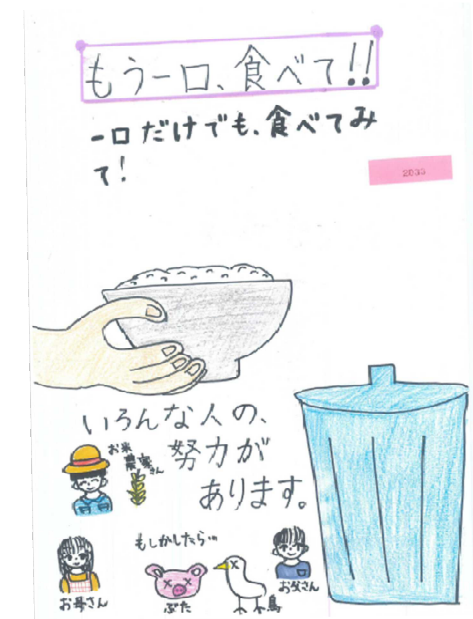 もう一口、食べて!!
一口だけでも、食べてみ
て!
いろんな人の、
努力が
あります。
お米
農家さん
もしかしたら…
お母さん
ぶた
鳥
お父さん